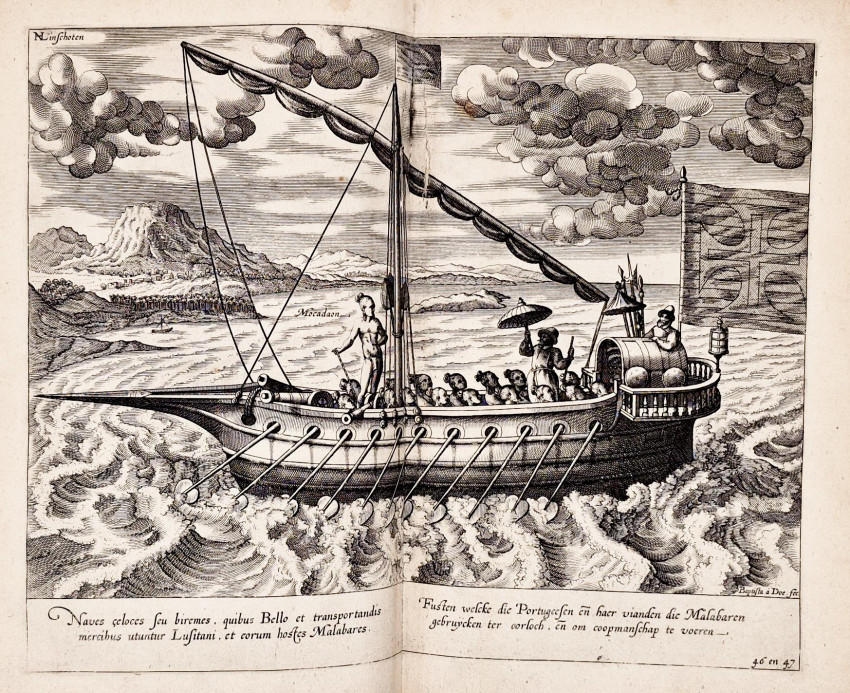 NLinschoten
Mocadaon
Baptista a Doe. fec
Naves çeloces seu biremes, quibus Bello et transportandis
mercibus utuntur Lusitani, et eorum hostes Malabares.
Fusten welcke die Portugeesen en̄ haer vianden die Malabaren
gebruycken ter oorloch, en̄ om coopmanschap te voeren
46 en 47